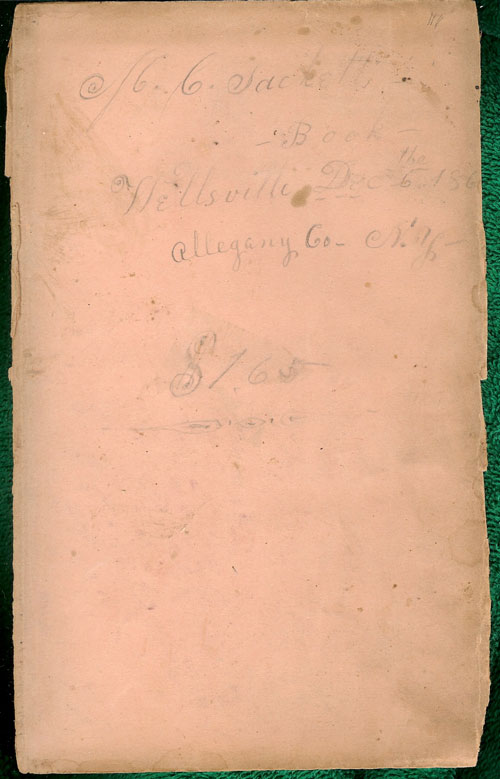 M. C. Sackett
- Book -
Wellsville Dec the 6. 186
Allegany Co - N. Y -
$1.65